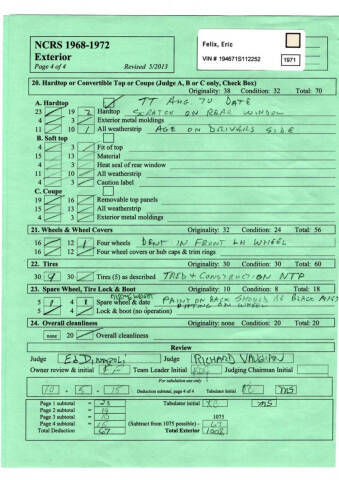 NCRS 1968-1972
Exterior
Page 4 of 4 Revised 5/2013
Felix, Eric
VIN # 194671S112252 1971
20. Hardtop or Convertible Top or Coupe (Judge A, B or C only, Check Box)
Originality: 38 Condition: 32 Total: 70
A. Hardtop TT AUG. 70 DATE
23 19 2 Hardtop SCRATCH ON REAR WINDOW
4 3 Exterior metal moldings
11 10 1 All weatherstrip AGE ON DRIVERS SIDE
B. Soft top
4 3 Fit of top
15 13 Material
4 3 Heat seal of rear window
11 10 All weatherstrip
4 3 Caution label
C. Coupe
19 16 Removable top panels
15 13 All weatherstrip
4 3 Exterior metal moldings
21. Wheels & Wheel Covers Originality: 32 Condition: 24 Total: 56
16 12 1 Four wheels DENT IN FRONT LH WHEEL
16 12 Four wheel covers or hub caps & trim rings
22. Tires Originality: 30 Condition: 30 Total: 60
30 9 30 Tires (5) as described TRED + CONSTRUCTION NTP
23. Spare Wheel, Tire Lock & Boot Originality: 10 Condition: 8 Total: 18
5 1 4 1 Spare wheel & date PAINT ON BACK SHOULD BE BLACK
PITTING ON WHEEL
5 4 Lock & boot (no operation)
24. Overall cleanliness Originality: none Condition: 20 Total: 20
none 20 Overall cleanliness
Review
Judge Judge RICHARD VAUGHN
Owner review & initial Team Leader Initial Judging Chairman Initial
For tabulation use only
10 - 5 - 15 Deduction subtotal, page 4 of 4 Tabulator Initial MS
Page 1 subtotal = 23 Tabulator initial MS
Page 2 subtotal = 14
Page 3 subtotal = 1075
Page 4 subtotal = 15 (Subtract from 1075 possible) - 67
Total Deduction 67 Total Exterior 1008